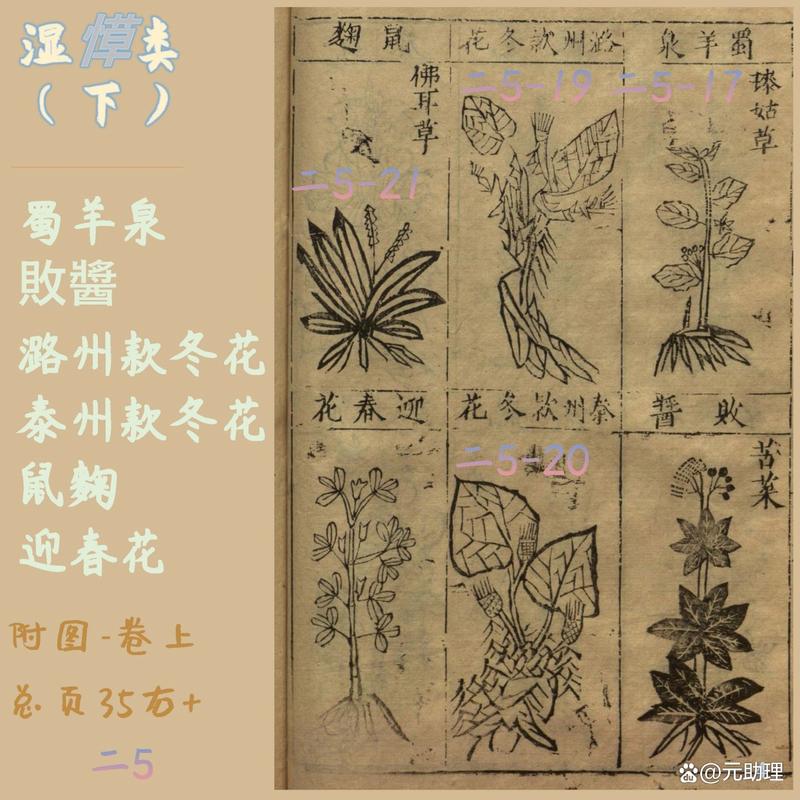 湿类
（下）
蜀羊泉
敗醬
潞州款冬花
泰州款冬花
鼠麴
迎春花
附图-卷上
总页35右+
二5
蜀羊泉
姑草
二5-17
潞州款冬花
二5-19
鼠麴
佛耳草
二5-21
敗醬
苦菜
秦州款冬花
二5-20
迎春花
@元助理